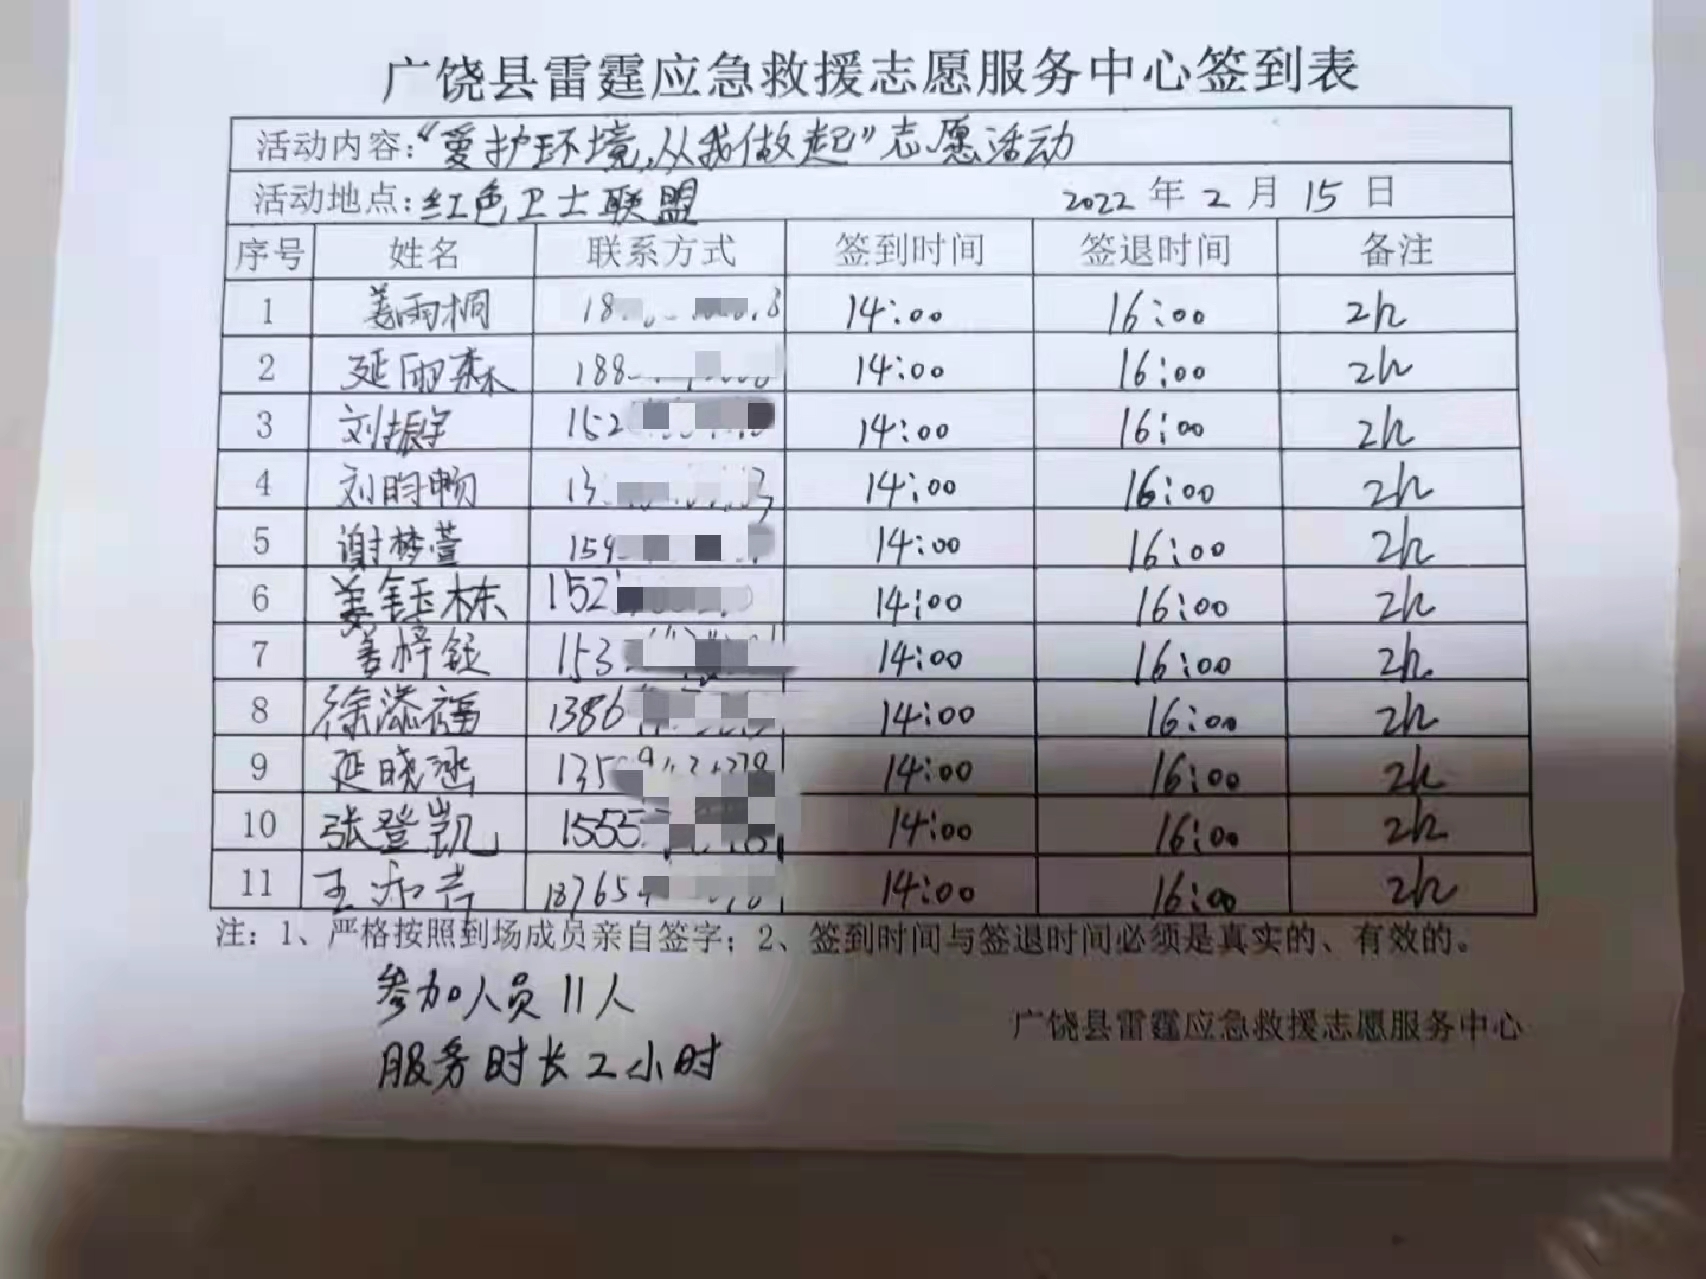 广饶县雷霆应急救援志愿服务中心签到表
活动内容：“爱护环境，从我做起”志愿活动
活动地点：红色卫士联盟 2022 年 2 月 15 日
序号 姓名 联系方式 签到时间 签退时间 备注
1 姜雨桐 18 14:00 16:00 2h
2 延雨森 188 14:00 16:00 2h
3 刘振宇 152 14:00 16:00 2h
4 刘昀畅 13 14:00 16:00 2h
5 谢梦萱 159 14:00 16:00 2h
6 姜钰栋 152 14:00 16:00 2h
7 姜梓钰 153 14:00 16:00 2h
8 徐添福 1386 14:00 16:00 2h
9 延晓涵 135 14:00 16:00 2h
10 张登凯 1555 14:00 16:00 2h
11 王 18765 14:00 16:00 2h
注：1、严格按照到场成员亲自签字；2、签到时间与签退时间必须是真实的、有效的。
参加人员11人
广饶县雷霆应急救援志愿服务中心
服务时长2小时